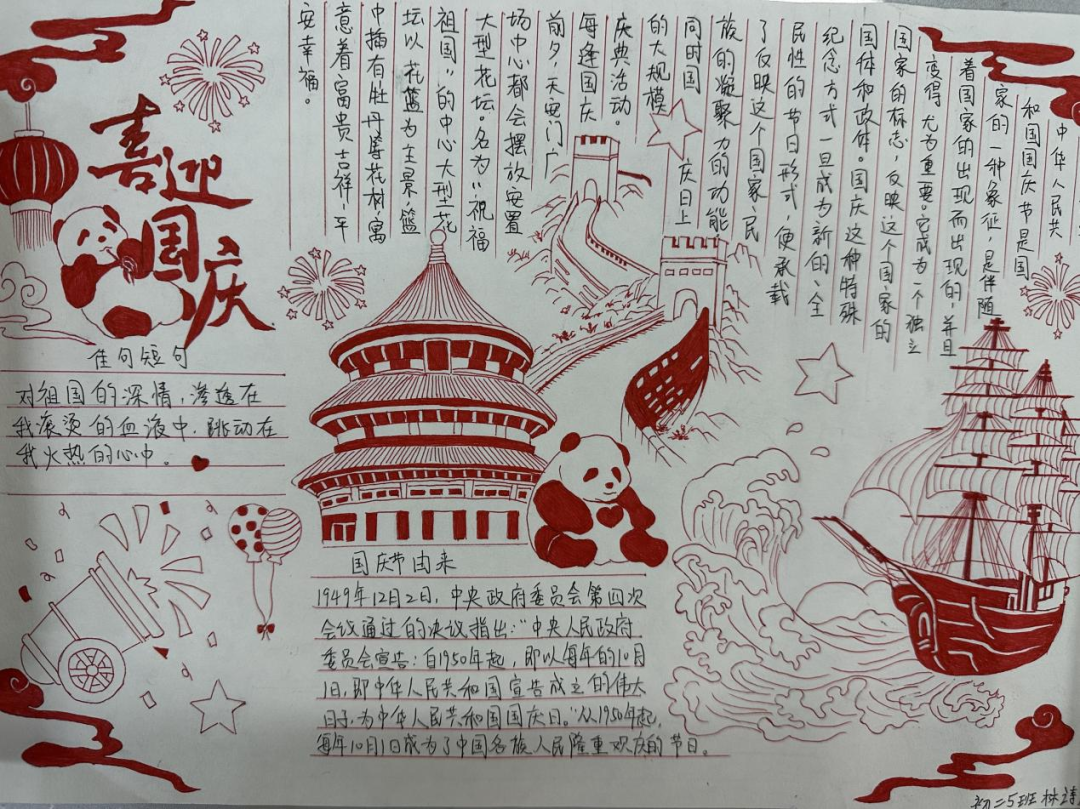 喜迎
国庆
佳句短句
对祖国的深情,渗透在
我滚烫的血液中,跳动在
我火热的心中。
中华人民共
和国国庆节是国
家的一种象征,是伴随
着国家的出现而出现的,并且
变得尤为重要。它成为一个独立
国家的标志,反映这个国家的
国体和政体。国庆这种特殊
纪念方式一旦成为新的、全
民性的节日形式,便承载
了反映这个国家、民
族的凝聚力的功能
同时国庆日上
的大规模
庆典活动。
每逢国庆
前夕,天安门广
场中心都会摆放安置
大型花坛。名为“祝福
祖国”的中心大型花
坛以花篮为主景,篮
中插有牡丹等花树,寓
意着富贵吉祥、平
安幸福。
国庆节由来
1949年12月2日,中央政府委员会第四次
会议通过的决议指出:“中央人民政府
委员会宣告:自1950年起,即以每年的10月
1日,即中华人民共和国宣告成立的伟大
日子,为中华人民共和国国庆日。”从1950年起,
每年10月1日成为了中国各族人民隆重欢庆的节日。
初二5班 林